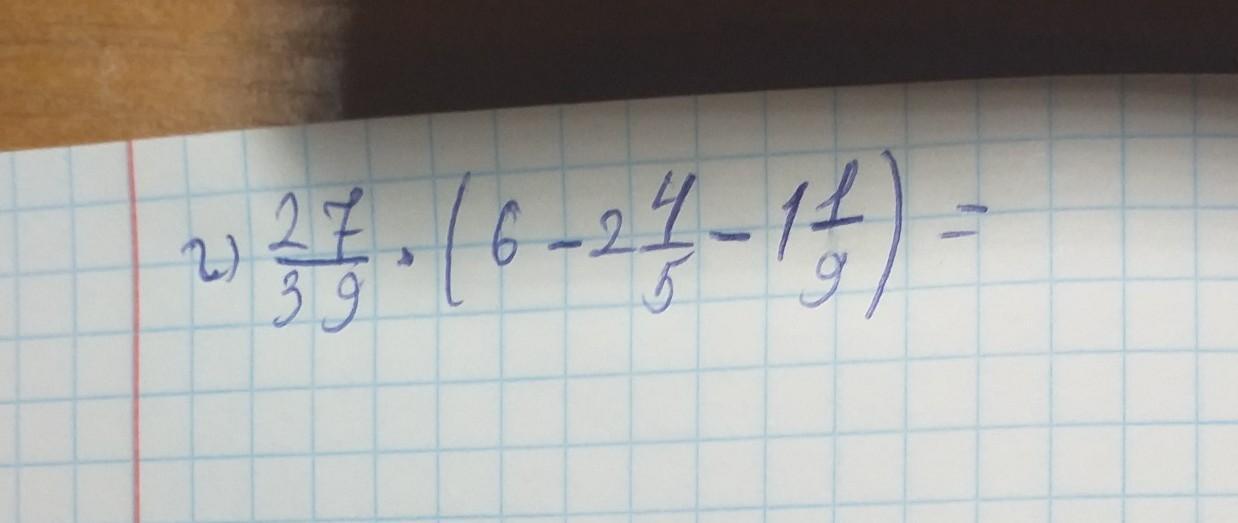 г) 27/39 · (6 - 2 4/5 - 1 1/9) =